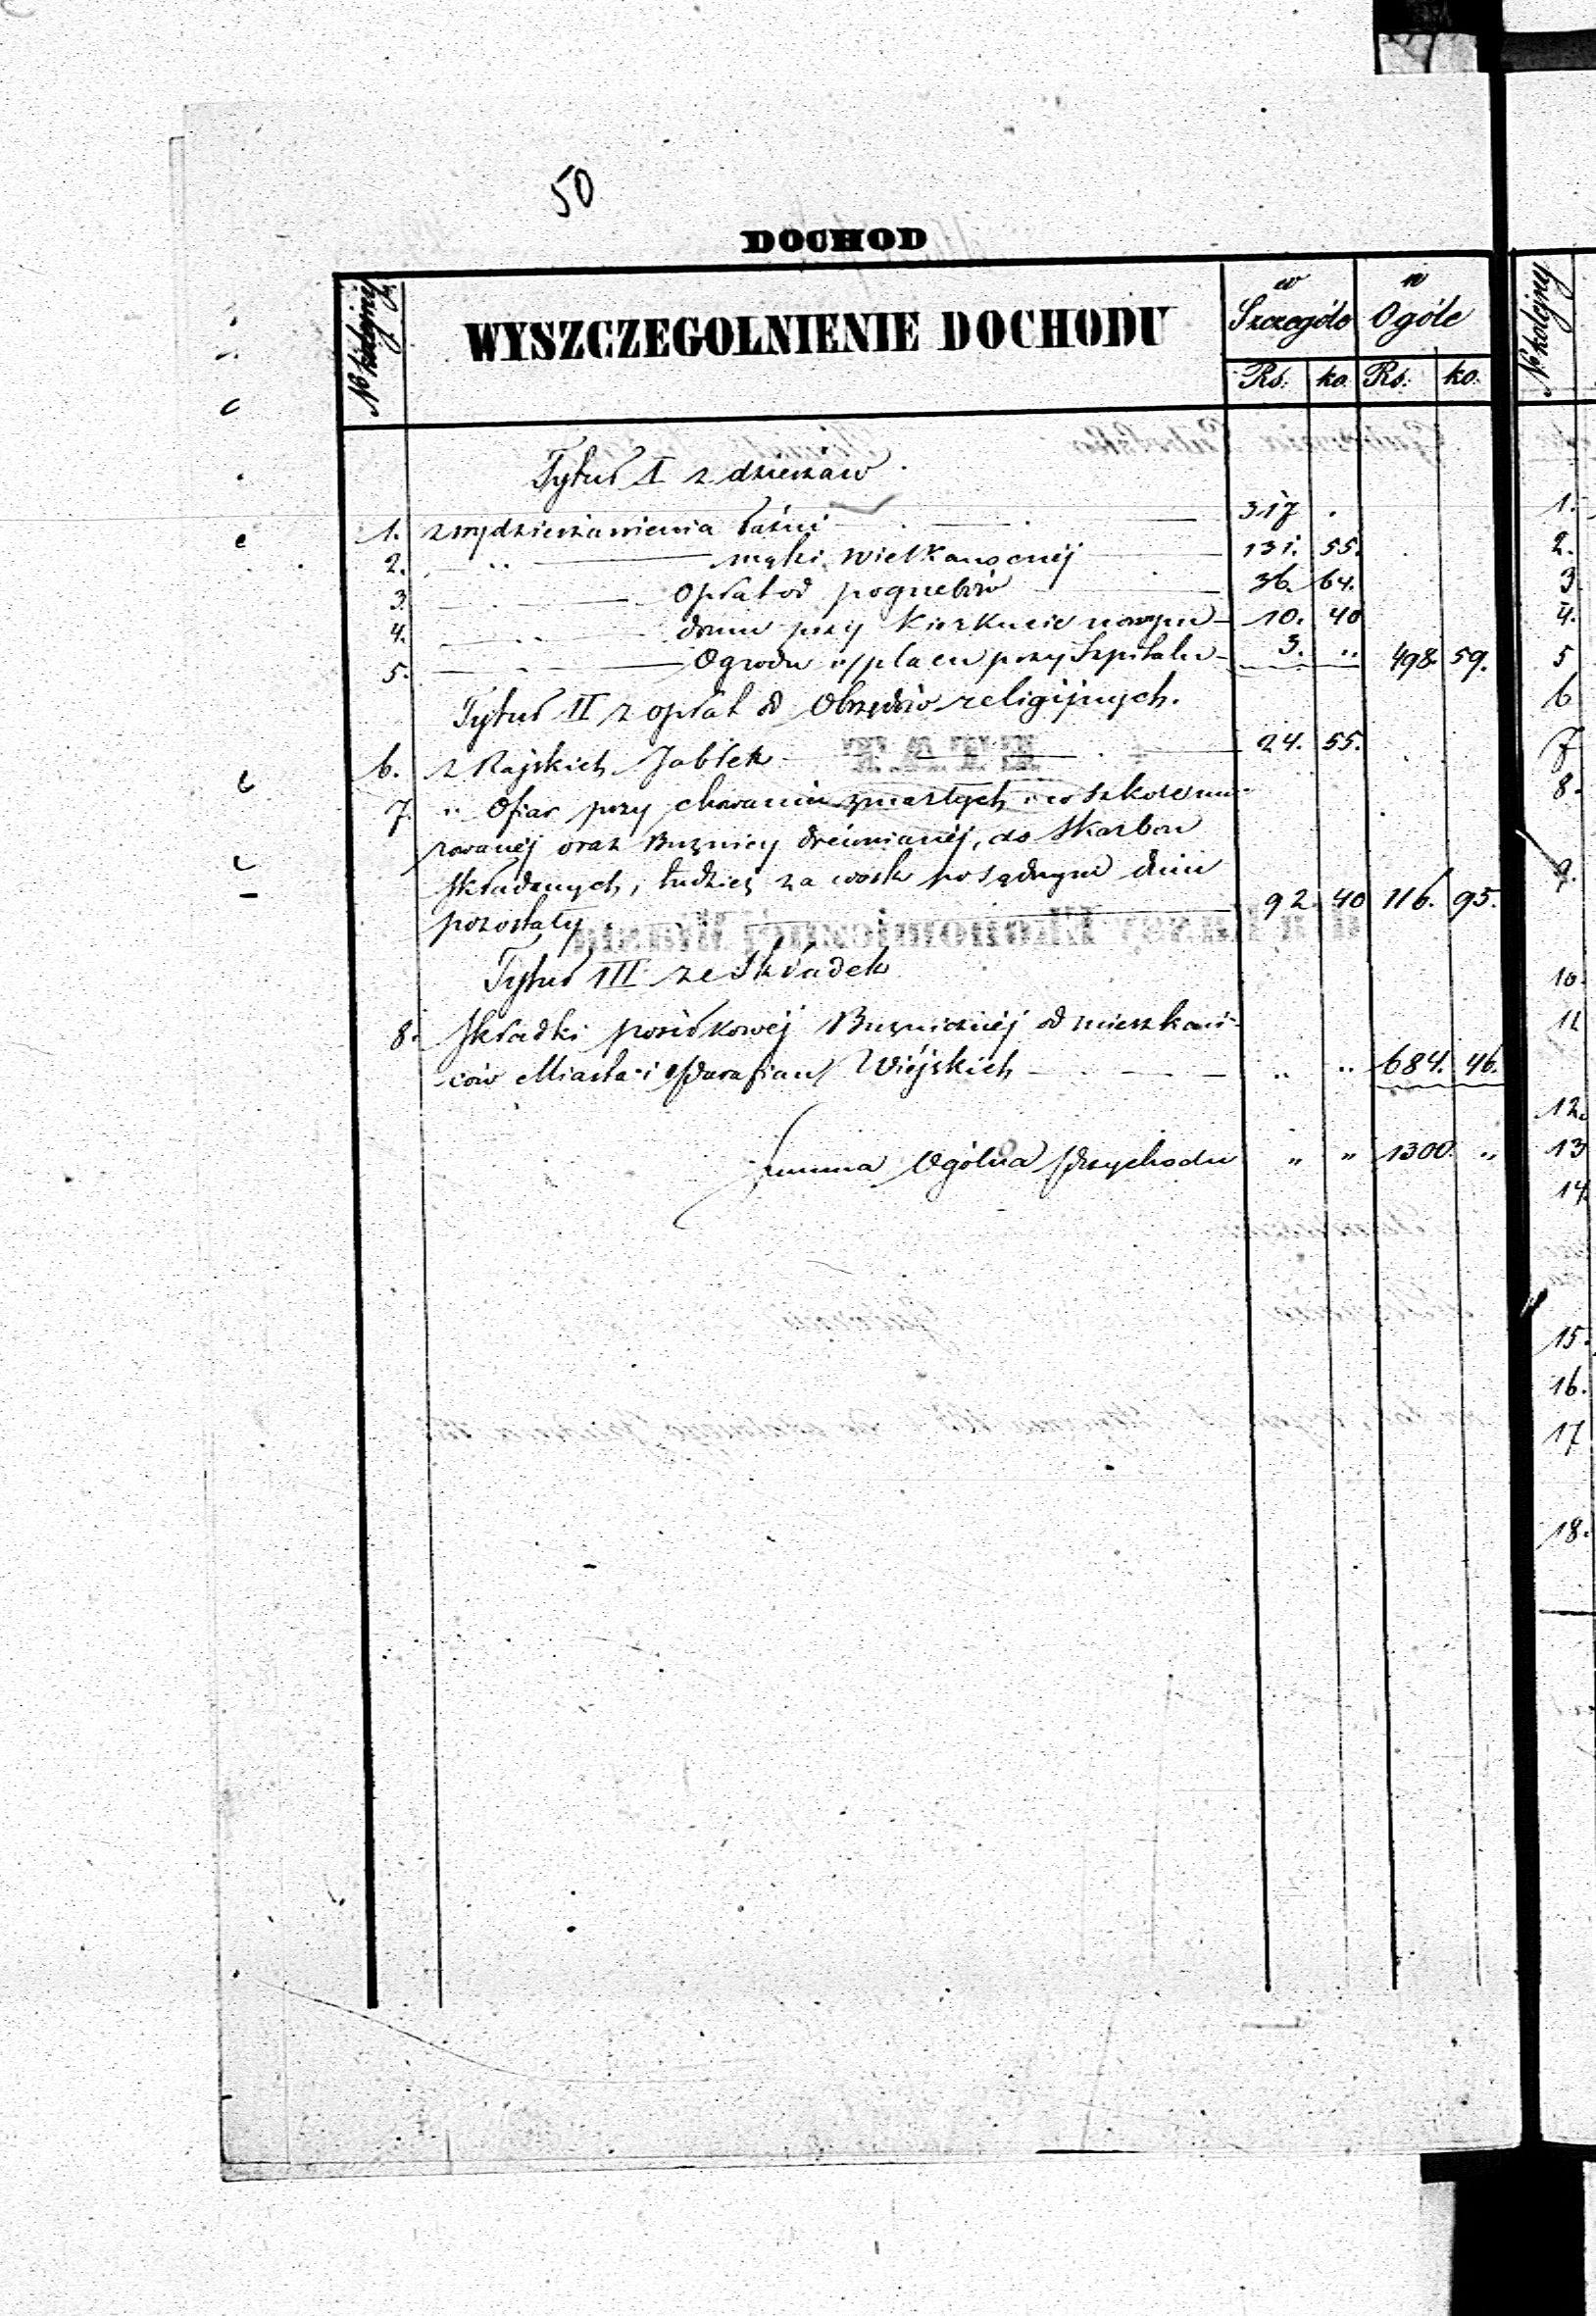 50
DOCHOD
No kolejny
WYSZCZEGOLNIENIE DOCHODU
w Szczególe
w Ogóle
Rs. ko. Rs. ko.
Tytuł I z dzierżaw
1. z wydzierżawienia łaźni 317 .
2. " mąki wielkanocnéj 131. 55.
3. Opłat od pogrzebów 36. 64.
4. " domu przy Kierkucie nowym 10. 40
5. Ogrodu i placu przy Szpitalu 3. " 498. 59.
Tytuł II z opłat od Obrzędów religijnych.
6. z Rajskich Jabłek 24. 55.
7. " Ofiar przy chowaniu zmarłych, w szkole mu-
rowanéj oraz Bużnicy drewnianéj, do skarbon
składanych, tudzież za wosk po sądnym dniu
pozostały 92 40 116. 95.
Tytuł III ze Składek
8. Składki posiłkowéj Bużniczéj od mieszkań-
ców Miasta i Parafian Wiéjskich " " 684. 46.
Summa Ogólna Przychodu " " 1300. "
No kolejny
1.
2.
3
4.
5
6
7
8.
9.
10.
11
12.
13
14
15.
16.
17
18.